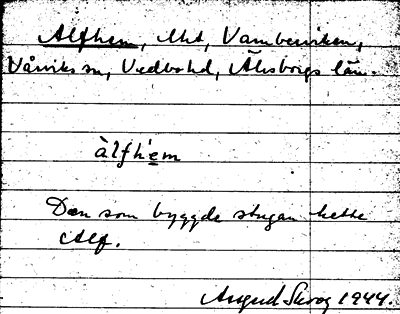 Alfhem, lht, Vamberviken,
Vårviks sn, Vedbo hd, Älvsborgs län.
àlfhe̲m
Den som byggde stugan hette
Alf.
Assar Skog 1944.